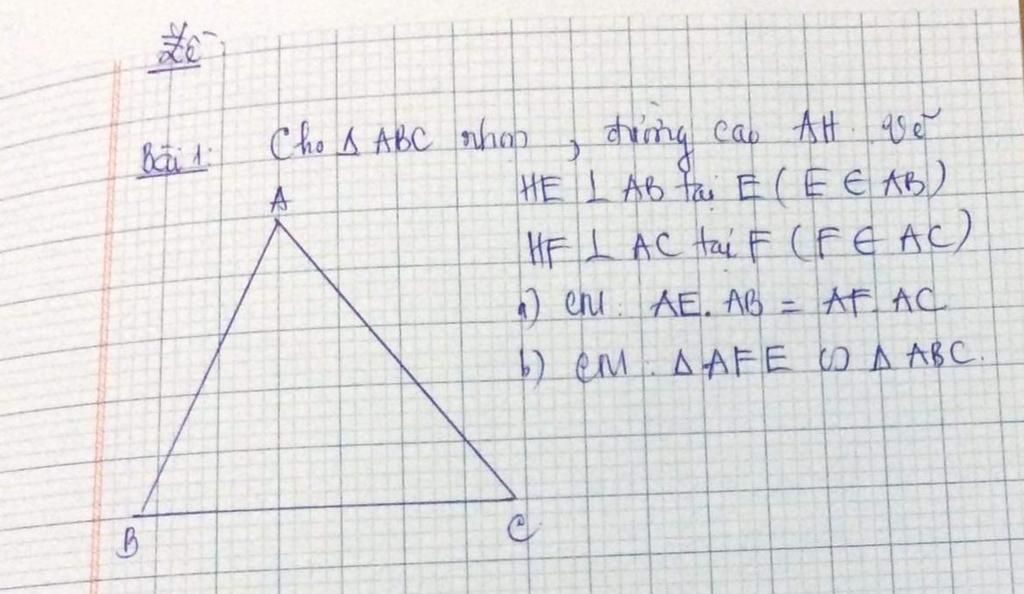 Bài 1: Cho Δ ABC nhọn, đường cao AH. vẽ
HE ⊥ AB tại E (E ∈ AB)
HF ⊥ AC tại F (F ∈ AC)
a) CM: AE. AB = AF. AC
b) CM: Δ AFE ∽ Δ ABC.
A
B
C